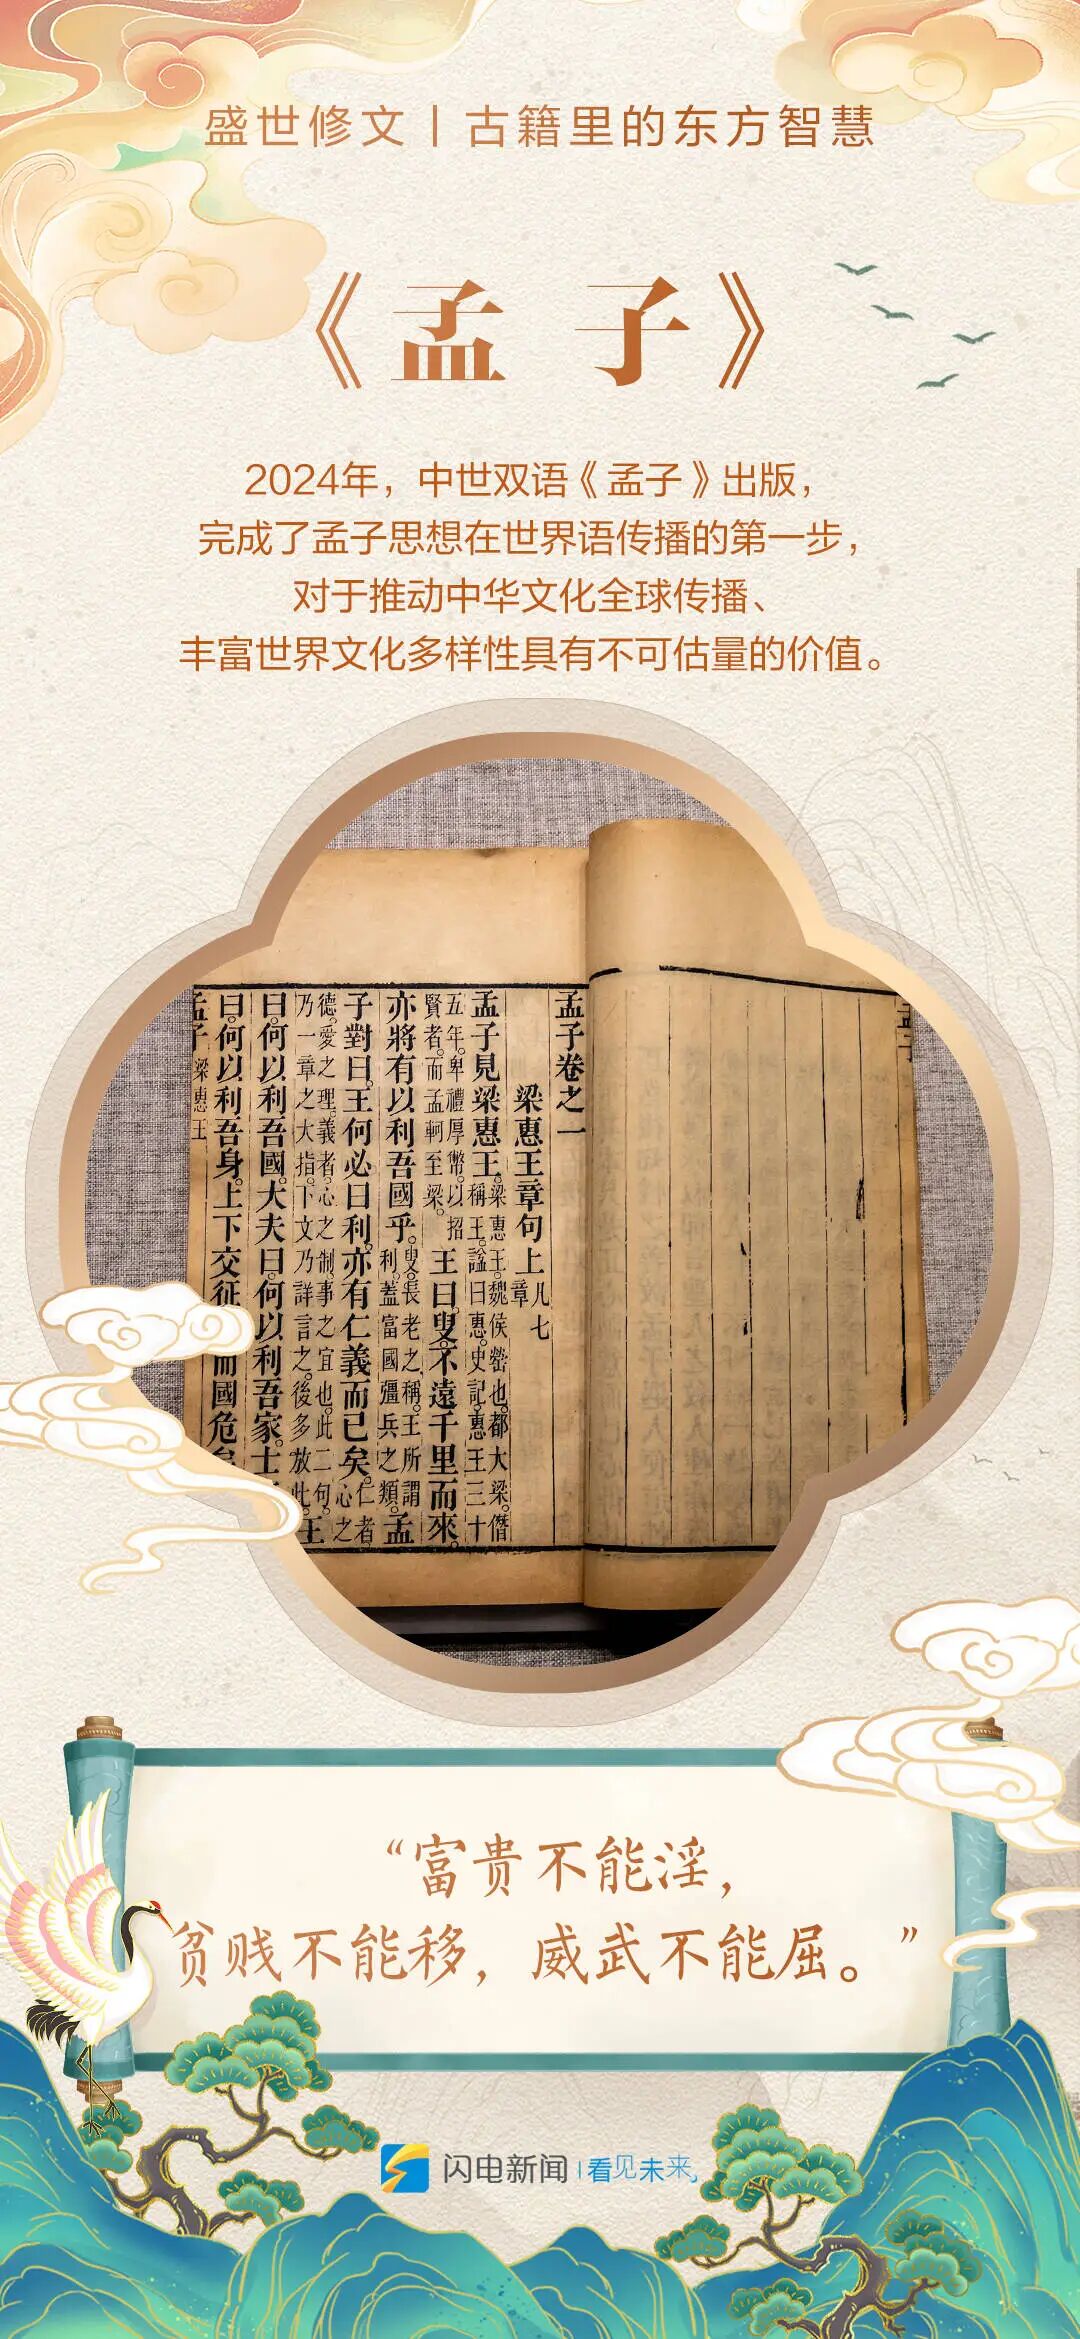 盛世修文丨古籍里的东方智慧
《孟子》
2024年，中世双语《孟子》出版，
完成了孟子思想在世界语传播的第一步，
对于推动中华文化全球传播、
丰富世界文化多样性具有不可估量的价值。
孟子卷之一
梁惠王章句上凡七章
孟子見梁惠王梁惠王魏侯罃也都大梁僭稱王謚曰惠史記惠王三十
五年卑禮厚幣以招賢者而孟軻至梁王曰叟不遠千里而來
亦將有以利吾國乎叟長老之稱王所謂利蓋富國彊兵之類孟
子對曰王何必曰利亦有仁義而已矣仁者心之
德愛之理義者心之制事之宜也此二句乃一章之大指下文乃詳言之後多放此王
曰何以利吾國大夫曰何以利吾家士
曰何以利吾身上下交征 而國危
孟子 梁惠王
“富贵不能淫，
贫贱不能移，威武不能屈。”
闪电新闻 | 看见未来